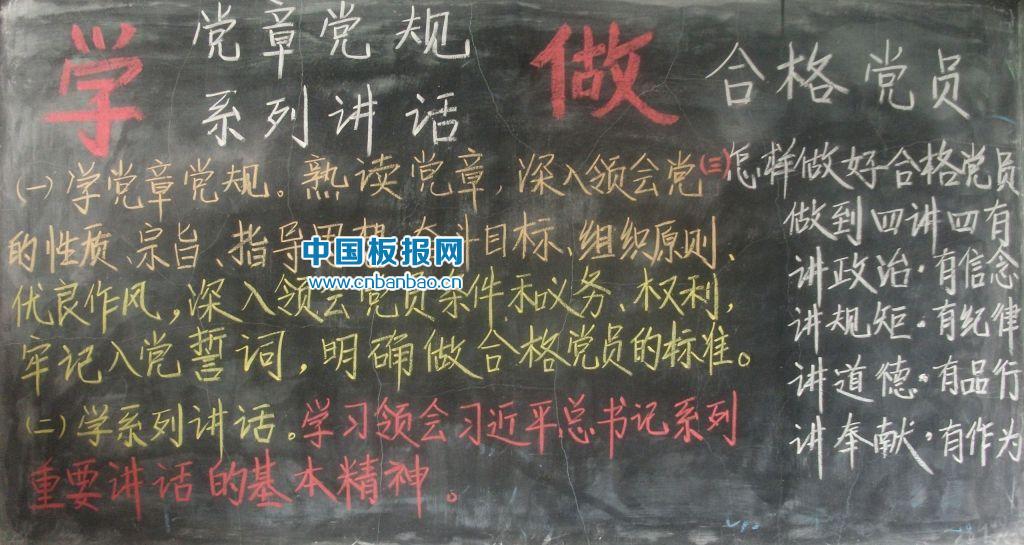 学 党章党规
系列讲话
做 合格党员
(一)学党章党规。熟读党章,深入领会党
的性质、宗旨、指导思想、奋斗目标、组织原则、
优良作风,深入领会党员条件和义务、权利,
牢记入党誓词,明确做合格党员的标准。
(二)学系列讲话。学习领会习近平总书记系列
重要讲话的基本精神。
(三)怎样做好合格党员
做到四讲四有
讲政治·有信念
讲规矩·有纪律
讲道德·有品行
讲奉献·有作为
中国板报网
www.cnbanbao.cn